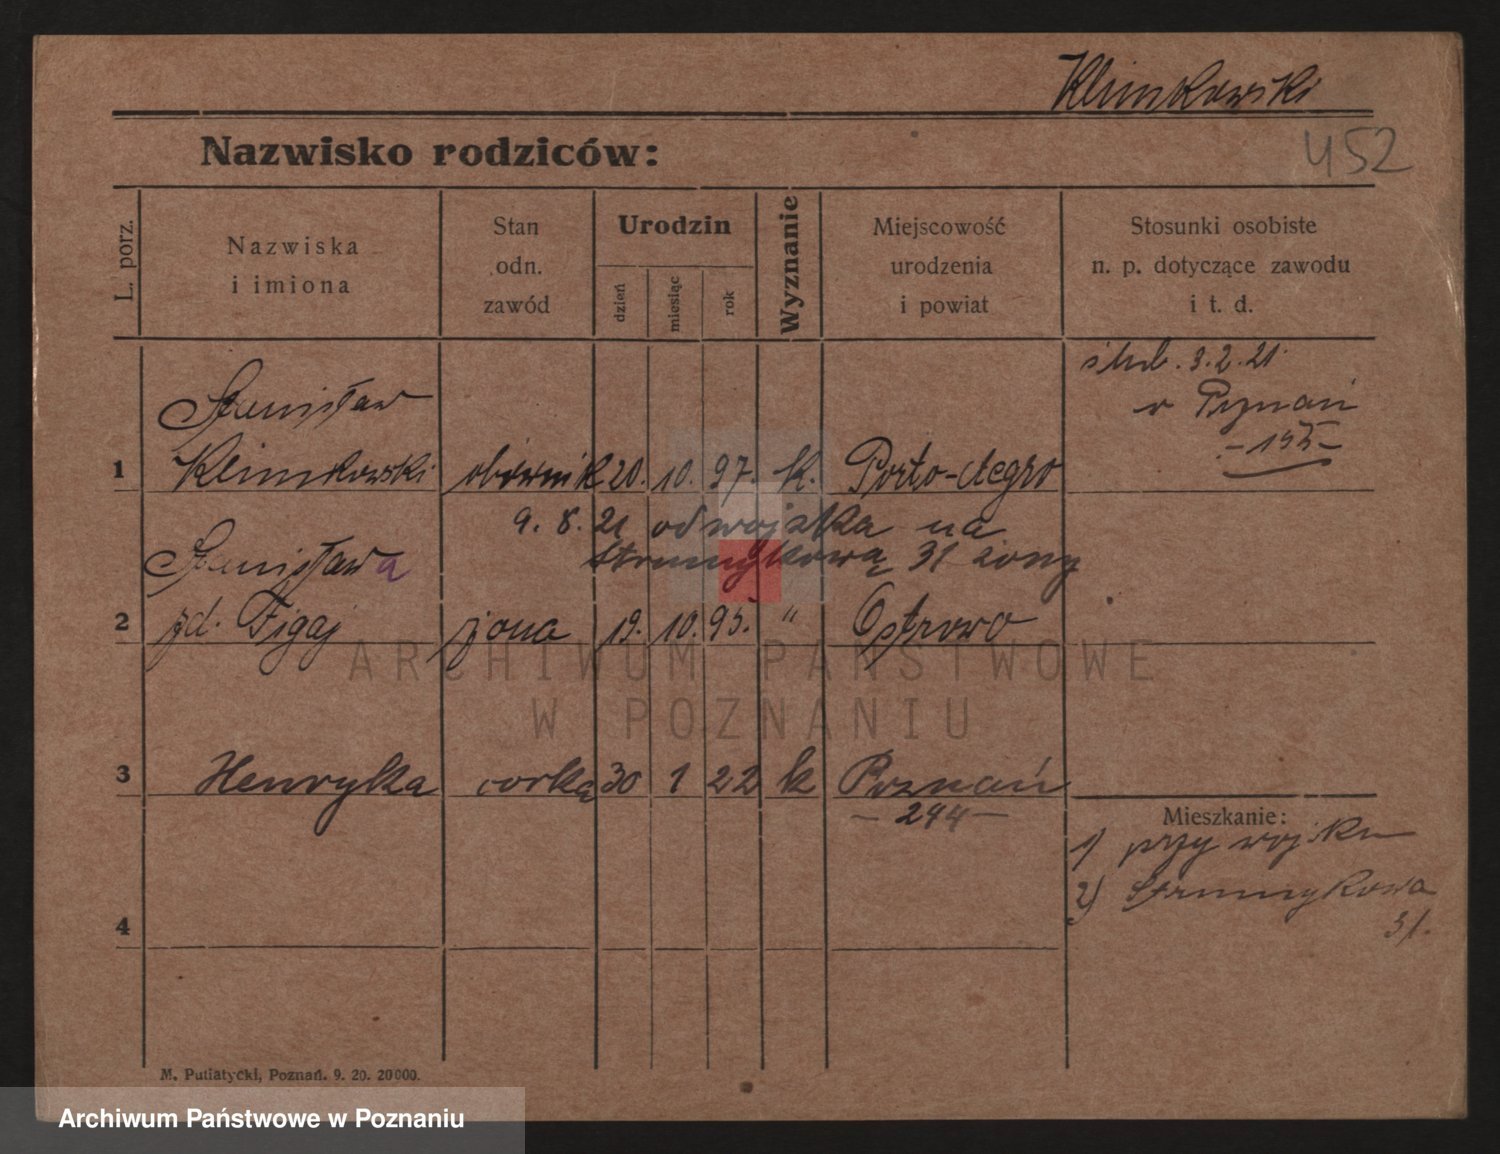 Klimkowski
452
Nazwisko rodziców:
L. porz.
Nazwiska
i imiona
Stan
odn.
zawód
Urodzin
dzień
miesiąc
rok
Wyznanie
Miejscowość
urodzenia
i powiat
Stosunki osobiste
n. p. dotyczące zawodu
i t. d.
ślub. 3.2.21.
w Poznań
Stanisław
1 Klimkowski obównik 20. 10. 97. k. Porto-Alegro
9. 8. 21 od wojska na
Strumykową 31 żony
Stanisława
2 zd. Figaj żona 19. 10. 95. " Ostrowo
3 Henryka corka 30 1 22 k Poznań
- 244 -
Mieszkanie:
1) przy wojsku
2) Strumykowa
31.
4
M. Putiatycki, Poznań. 9. 20. 20000.
ARCHIWUM PAŃSTWOWE
W POZNANIU
Archiwum Państwowe w Poznaniu